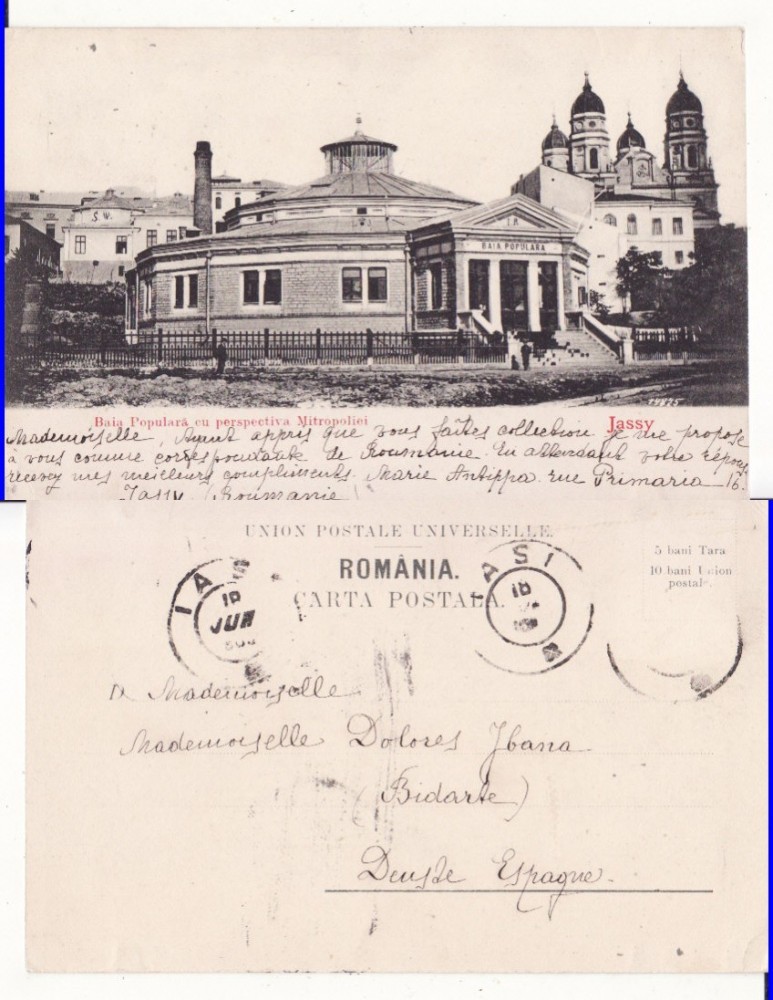 S.W.
BAIA POPULARA
Baia Populară cu perspectiva Mitropoliei
Jassy
Mademoiselle, Ayant appris que vous faîtes collection je me propose
à vous comme correspondante de Roumanie. En attendant votre réponse
recevez mes meilleurs compliments. Marie Antippa rue Primaria 16.
Jassy (Roumanie)
UNION POSTALE UNIVERSELLE.
ROMÂNIA.
CARTA POSTALA.
5 bani Tara
10 bani Union
postale.
IAS
JUN
IASI
Mademoiselle
Mademoiselle Dolores Ibana
(Bidarte)
Deuste Espagne.